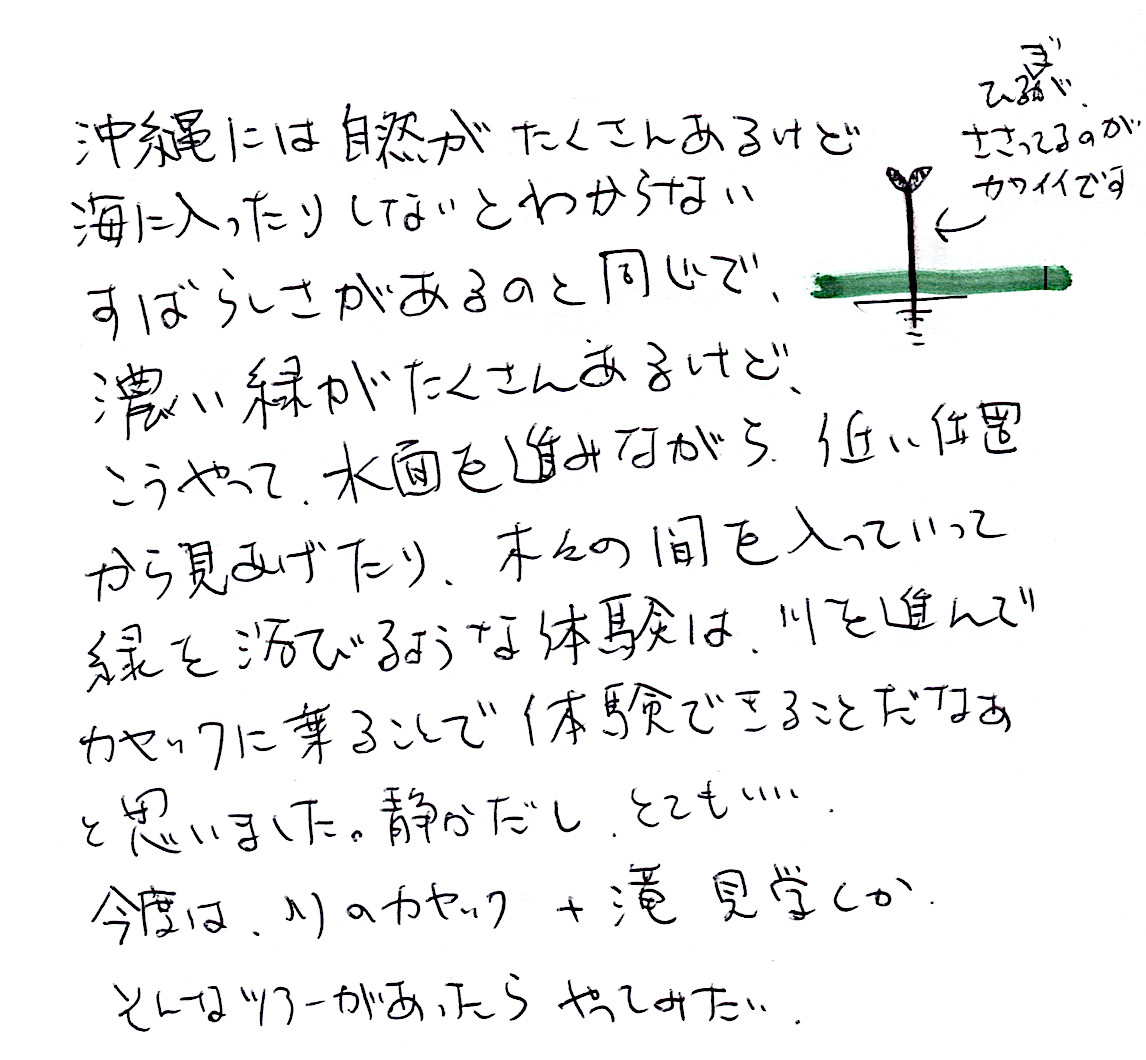 沖縄には自然がたくさんあるけど
海に入ったりしないとわからない
すばらしさがあるのと同じで、
濃い緑がたくさんあるけど、
こうやって、水面を進みながら、近い位置
から見あげたり、木々の間を入っていって
緑を浴びるような体験は、川を進んで
カヤックに乗ることで体験できることだなぁ
と思いました。静かだし、とても‥‥.
今度は、川のカヤック + 滝 見学とか、
そんなツアーがあったら やってみたい、
ぎ
ひるが、
ささってるのが
カワイイです